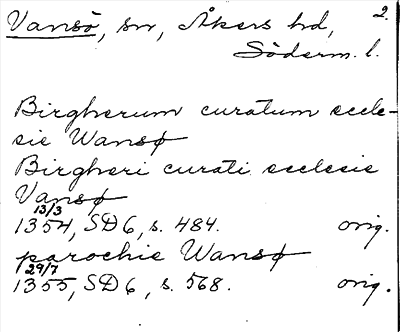 Vansö, sn, Åkers hd, 2.
Söderm. l.
Birgherum curatum eccle-
sie Wansø
Birgheri curati ecclesie
Vansø
13/3
1354, SD 6, s. 484. orig.
parochie Wansø
29/7
1355, SD 6, s. 568. orig.